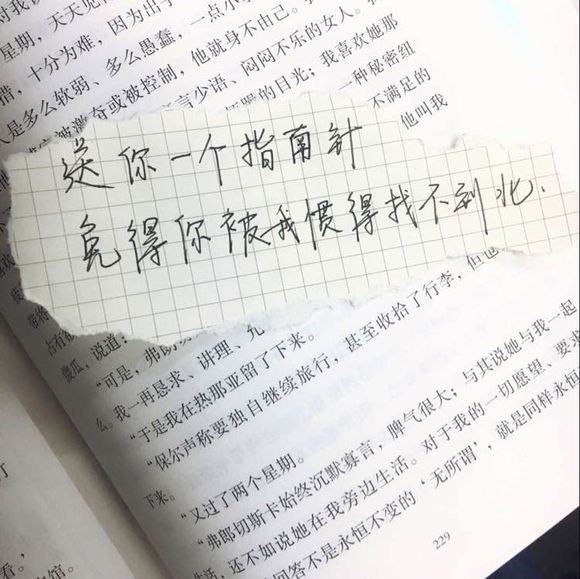 对我
星期,天天见
措,十分为难,因为出于
人是多么软弱、多么愚蠢,一点小
被激奋或被控制,他就身不由己。
言少语、闷闷不乐的女人。
的目光;我喜欢她那
一种秘密纽
不满足的
他叫我
送你一个指南针
免得你被我惯得找不到北.
占有
傻瓜,说道:
“可是,弗郎
么。我一再恳求、讲理、
“于是我在热那亚留了下来。
“保尔声称要独自继续旅行,甚至收拾了行李,但也
下来。
“又过了两个星期。
“弗郎切斯卡始终沉默寡言,脾气很大;与其说她与我一起
生活,还不如说她在我旁边生活。对于我的一切愿望、要求
回答不是永恒不变的‘无所谓’,就是同样永恒
229
看。
馆。